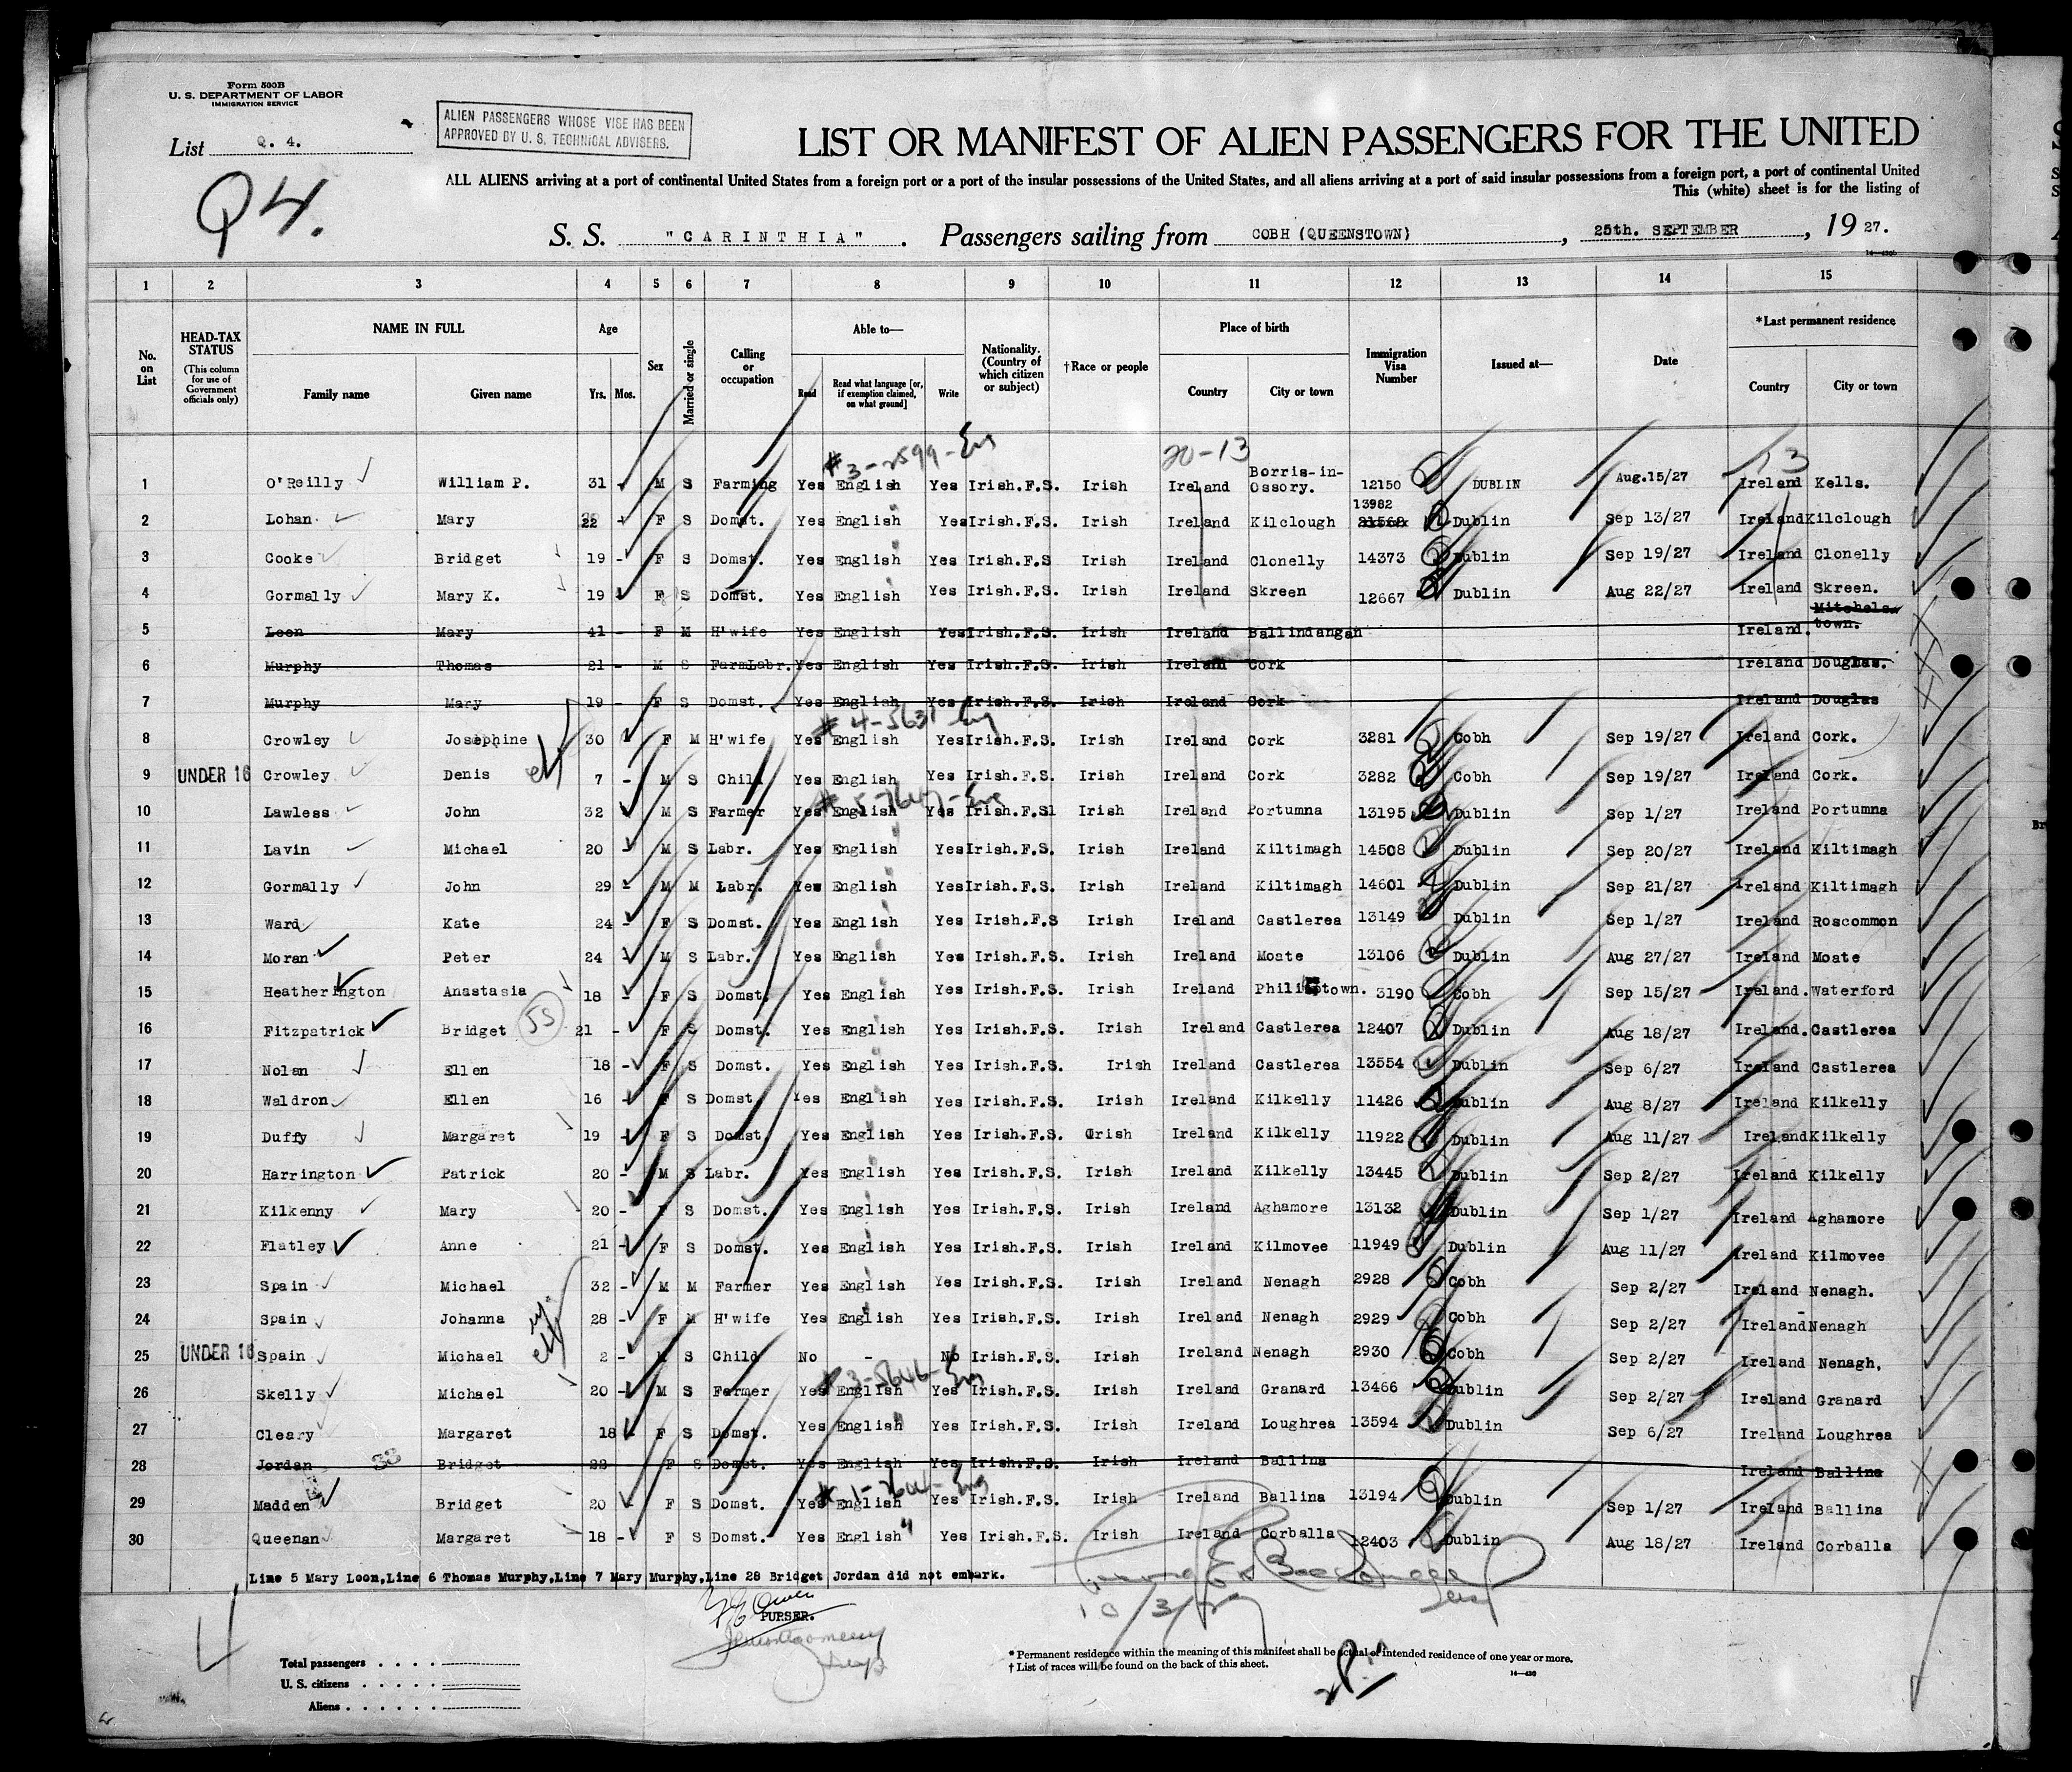 Form 500B
U. S. DEPARTMENT OF LABOR
IMMIGRATION SERVICE
ALIEN PASSENGERS WHOSE VISE HAS BEEN
APPROVED BY U. S. TECHNICAL ADVISERS.
List Q. 4.
Q4.
LIST OR MANIFEST OF ALIEN PASSENGERS FOR THE UNITED
ALL ALIENS arriving at a port of continental United States from a foreign port or a port of the insular possessions of the United States, and all aliens arriving at a port of said insular possessions from a foreign port, a port of continental United
This (white) sheet is for the listing of
S. S. "CARINTHIA" . Passengers sailing from COBH (QUEENSTOWN) , 25th. SEPTEMBER , 19 27.
1 2 3 4 5 6 7 8 9 10 11 12 13 14 15
No. on List
HEAD-TAX STATUS (This column for use of Government officials only)
NAME IN FULL Family name Given name
Age Yrs. Mos.
Sex
Married or single
Calling or occupation
Able to— Read Read what language [or, if exemption claimed, on what ground] Write
Nationality. (Country of which citizen or subject)
†Race or people
Place of birth Country City or town
Immigration Visa Number
Issued at—
Date
*Last permanent residence Country City or town
#3-2599-Eng 20-13 13
1 O'Reilly William P. 31 - M S Farming Yes English Yes Irish.F.S. Irish Ireland Borris-in-Ossory. 12150 DUBLIN Aug.15/27 Ireland Kells.
2 Lohan Mary 22 - F S Domst. Yes English Yes Irish.F.S. Irish Ireland Kilclough 13982 Dublin Sep 13/27 Ireland Kilclough
3 Cooke Bridget 19 - F S Domst. Yes English Yes Irish.F.S Irish Ireland Clonelly 14373 Dublin Sep 19/27 Ireland Clonelly
4 Gormally Mary K. 19 F S Domst. Yes English Yes Irish.F.S. Irish Ireland Skreen 12667 Dublin Aug 22/27 Ireland Skreen.
5 Loon Mary 41 - F M H'wife Yes English Yes Irish.F.S. Irish Ireland Ballindangan Ireland. Mitchelstown.
6 Murphy Thomas 21 - M S FarmLabr. Yes English Yes Irish.F.S. Irish Ireland Cork Ireland Douglas.
7 Murphy Mary 19 - F S Domst. Yes English Yes Irish.F.S. Irish Ireland Cork Ireland Douglas
#4-5631-Eng
8 Crowley Josephine 30 F M H'wife Yes English Yes Irish.F.S. Irish Ireland Cork 3281 Cobh Sep 19/27 Ireland Cork.
9 UNDER 16 Crowley Denis 7 - M S Child Yes English Yes Irish.F.S. Irish Ireland Cork 3282 Cobh Sep 19/27 Ireland Cork.
10 Lawless John 32 M S Farmer Yes English Yes Irish.F.Sl Irish Ireland Portumna 13195 Dublin Sep 1/27 Ireland Portumna
11 Lavin Michael 20 M S Labr. Yes English Yes Irish.F.S. Irish Ireland Kiltimagh 14508 Dublin Sep 20/27 Ireland Kiltimagh
12 Gormally John 29 - M M Labr. Yes English Yes Irish.F.S. Irish Ireland Kiltimagh 14601 Dublin Sep 21/27 Ireland Kiltimagh
13 Ward Kate 24 - F S Domst. Yes English Yes Irish.F.S Irish Ireland Castlerea 13149 Dublin Sep 1/27 Ireland Roscommon
14 Moran Peter 24 M S Labr. Yes English Yes Irish.F.S. Irish Ireland Moate 13106 Dublin Aug 27/27 Ireland Moate
15 Heatherington Anastasia 18 - F S Domst. Yes English Yes Irish.F.S. Irish Ireland Philipstown. 3190 Cobh Sep 15/27 Ireland. Waterford
16 Fitzpatrick Bridget 21 - F S Domst. Yes English Yes Irish.F.S. Irish Ireland Castlerea 12407 Dublin Aug 18/27 Ireland. Castlerea
17 Nolan Ellen 18 - F S Domst. Yes English Yes Irish.F.S. Irish Ireland Castlerea 13554 Dublin Sep 6/27 Ireland Castlerea
18 Waldron Ellen 16 - F S Domst. Yes English Yes Irish.F.S. Irish Ireland Kilkelly 11426 Dublin Aug 8/27 Ireland Kilkelly
19 Duffy Margaret 19 - F S Domst. Yes English Yes Irish.F.S. Irish Ireland Kilkelly 11922 Dublin Aug 11/27 Ireland Kilkelly
20 Harrington Patrick 20 - M S Labr. Yes English Yes Irish.F.S. Irish Ireland Kilkelly 13445 Dublin Sep 2/27 Ireland Kilkelly
21 Kilkenny Mary 20 - F S Domst. Yes English Yes Irish.F.S. Irish Ireland Aghamore 13132 Dublin Sep 1/27 Ireland Aghamore
22 Flatley Anne 21 - F S Domst. Yes English Yes Irish.F.S. Irish Ireland Kilmovee 11949 Dublin Aug 11/27 Ireland Kilmovee
23 Spain Michael 32 - M M Farmer Yes English Yes Irish.F.S. Irish Ireland Nenagh 2928 Cobh Sep 2/27 Ireland Nenagh.
24 Spain Johanna 28 - F M H'wife Yes English Yes Irish.F.S. Irish Ireland Nenagh 2929 Cobh Sep 2/27 Ireland Nenagh
25 UNDER 16 Spain Michael 2 - M S Child No - No Irish.F.S. Irish Ireland Nenagh 2930 Cobh Sep 2/27 Ireland Nenagh.
#3-5646-Eng
26 Skelly Michael 20 - M S Farmer Yes English Yes Irish.F.S. Irish Ireland Granard 13466 Dublin Sep 2/27 Ireland Granard
27 Cleary Margaret 18 - F S Domst. Yes English Yes Irish.F.S. Irish Ireland Loughrea 13594 Dublin Sep 6/27 Ireland Loughrea
28 Jordan 38 Bridget F S Domst. Yes English Yes Irish.F.S. Irish Ireland Ballina Ireland Ballina
29 Madden Bridget 20 F S Domst. Yes English Yes Irish.F.S. Irish Ireland Ballina 13194 Dublin Sep 1/27 Ireland Ballina
30 Queenan Margaret 18 - F S Domst. Yes English Yes Irish.F.S. Irish Ireland Corballa 12403 Dublin Aug 18/27 Ireland Corballa
Line 5 Mary Loon,Line 6 Thomas Murphy,Line 7 Mary Murphy,Line 28 Bridget Jordan did not embark.
PURSER.
10/3/27
4
Total passengers
U. S. citizens
Aliens
* Permanent residence within the meaning of this manifest shall be actual or intended residence of one year or more.
† List of races will be found on the back of this sheet.